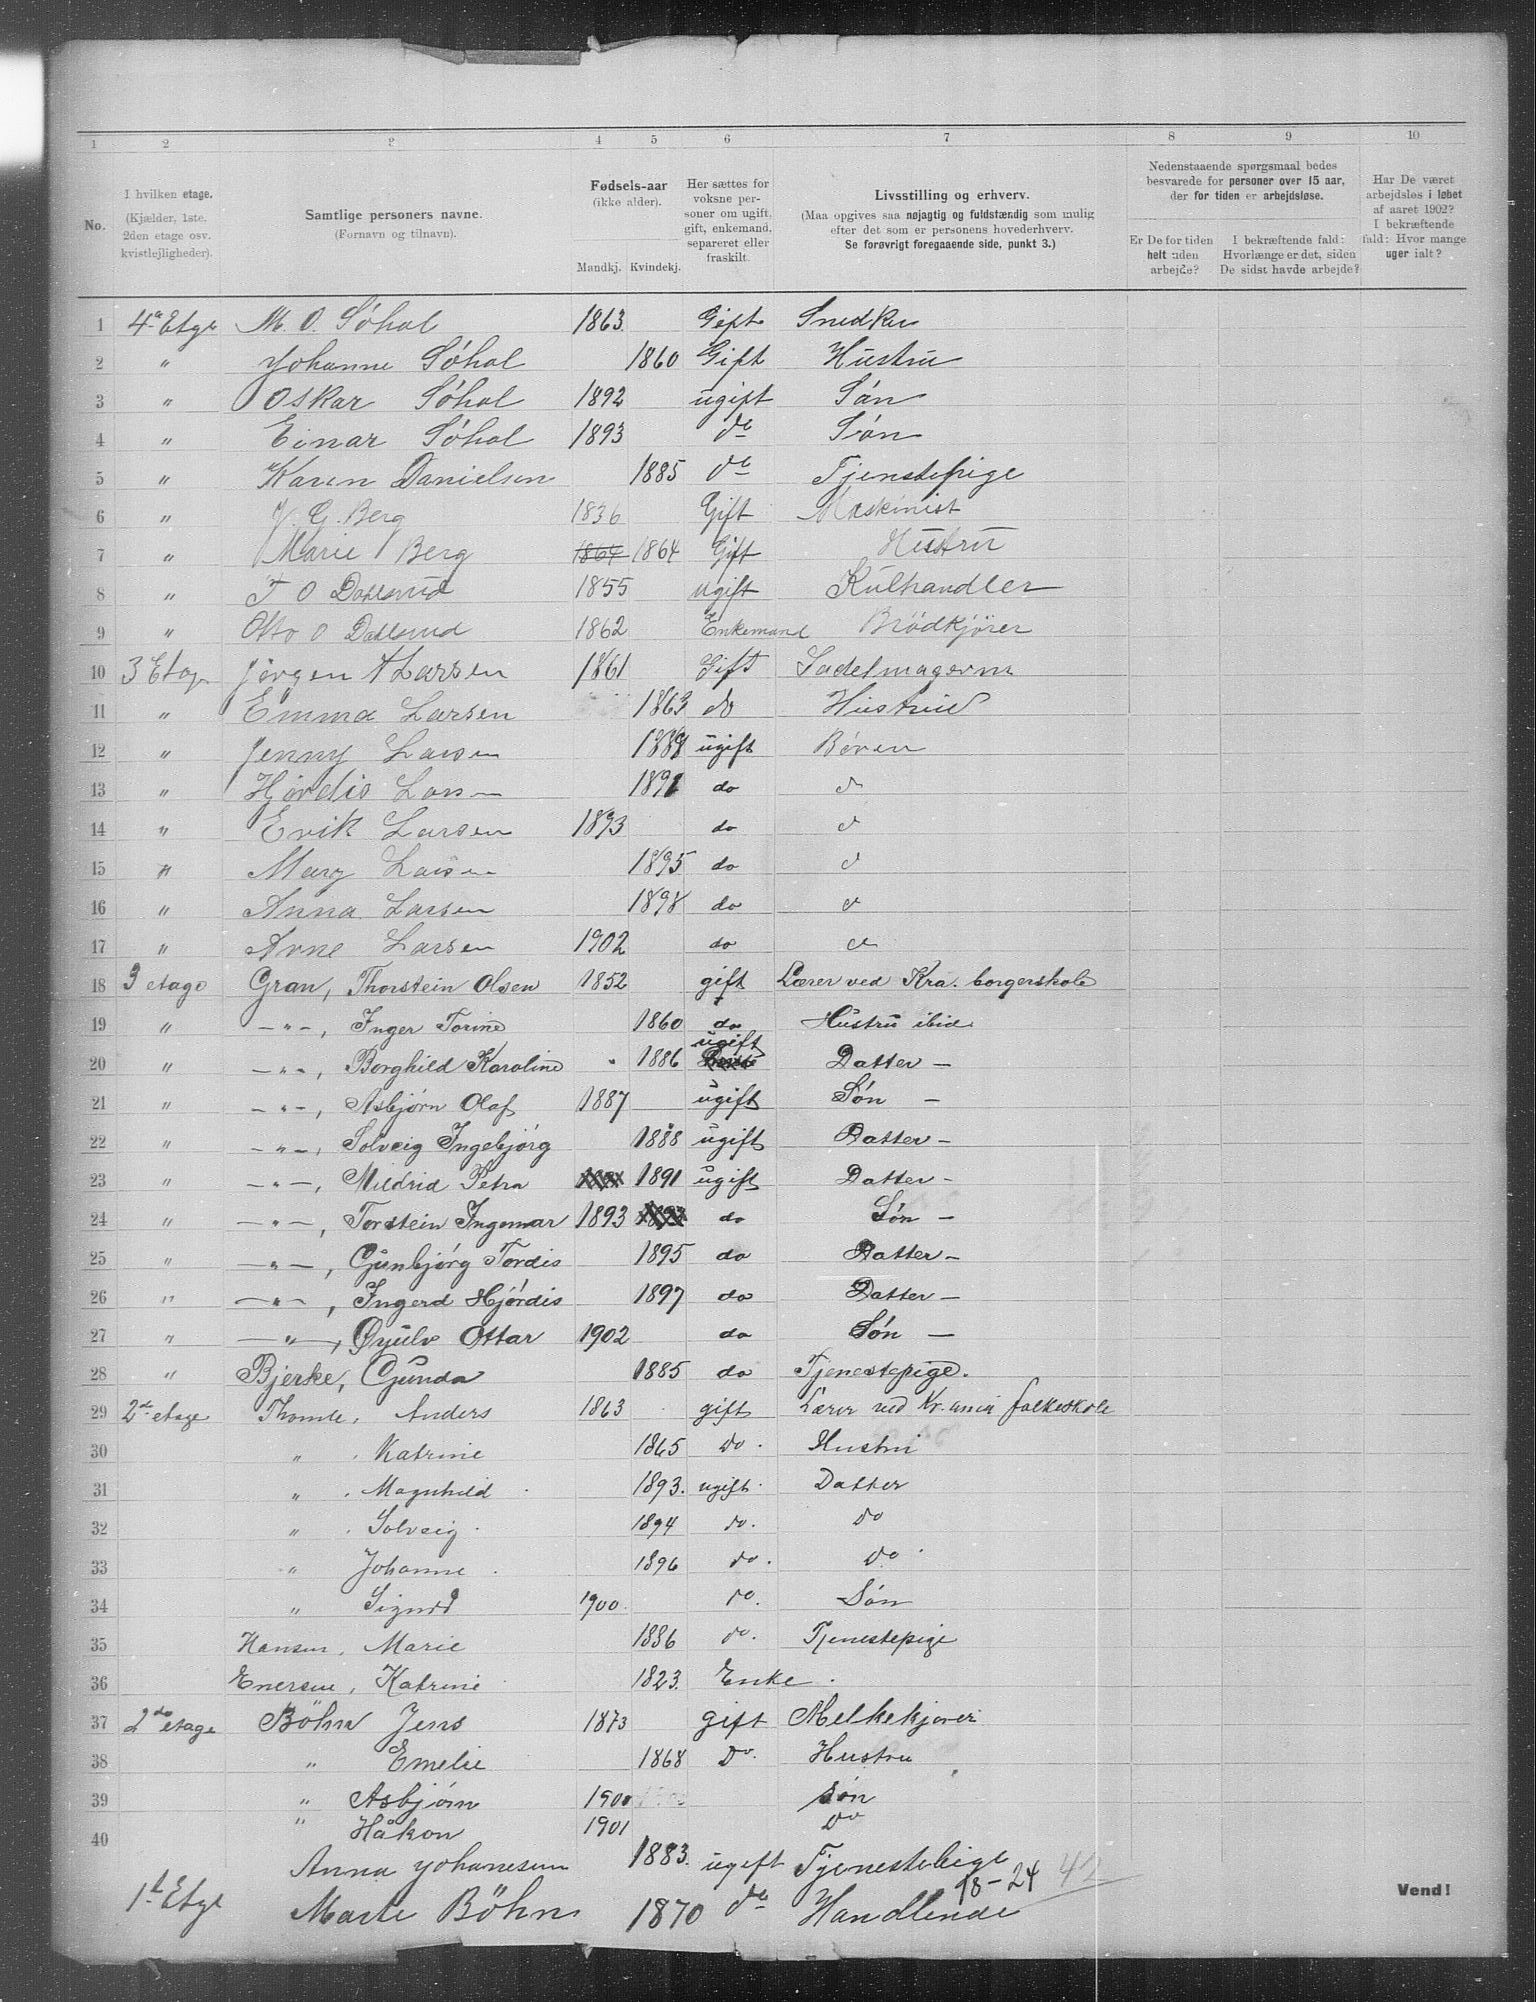 1 2 3 4 5 6 7 8 9 10
No.
I hvilken etage.
(Kjælder, 1ste, 2den etage osv. kvistlejligheder).
Samtlige personers navne.
(Fornavn og tilnavn).
Fødsels-aar
(ikke alder).
Mandkj. Kvindekj.
Her sættes for voksne personer om ugift, gift, enkemand, separeret eller fraskilt.
Livsstilling og erhverv.
(Maa opgives saa nøjagtig og fuldstændig som mulig efter det som er personens hovederhverv.
Se forøvrigt foregaaende side, punkt 3.)
Nedenstaaende spørgsmaal bedes besvarede for personer over 15 aar, der for tiden er arbejdsløse.
Er De for tiden helt uden arbejde?
I bekræftende fald: Hvorlænge er det, siden De sidst havde arbejde?
Har De været arbejdsløs i løbet af aaret 1902? I bekræftende fald: Hvor mange uger ialt?
1 4a Etge M. O. Söhol 1863. Gift Snedker
2 " Johanne Söhol 1860 Gift Hustru
3 " Oskar Söhol 1892 ugift Søn
4 " Einar Söhol 1893 do Søn
5 " Karen Danielsen 1885 do Tjenstepige
6 " J. G. Berg 1836 Gift Maskinist
7 " Marie Berg 1864 1864 Gift Hustru
8 " T O Dahlsrud 1855 ugift Kulhandler
9 " Otto O Dahlsrud 1862 Enkemand Brödkjörer
10 3 Etag Jørgen A Larsen 1861 Gift Sadelmagerm
11 " Emma Larsen 1863 do Hustrue
12 " Jenny Larsen 1889 ugift Børen
13 " Hjørdis Larsen 1891 do d
14 " Erik Larsen 1893 do d
15 " Mary Larsen 1895 do d
16 " Anna Larsen 1898 do d
17 " Arne Larsen 1902 do d
18 3 etage Gran, Thorstein Olsen 1852 gift Lærer ved Kra. borgerskole
19 " —"—, Inger Torine 1860 do Hustru ibid.
20 " —"—, Borghild Karoline 1886 ugift Datter —
21 " —"—, Asbjørn Olaf 1887 ugift Søn —
22 " —"—, Solveig Ingebjörg 1888 ugift Datter —
23 " —"—, Mildrid Petra 1891 ugift Datter —
24 " —"—, Torstein Ingemar 1893 do Søn —
25 " —"—, Gunbjörg Tordis 1895 do Datter —
26 " —"—, Ingerd Hjördis 1897 do Datter —
27 " —"—, Øyulv Ottar 1902 do Søn —
28 " Bjerke, Gunda 1885 do Tjenestepige.
29 2de etage Thomle, Anders 1863 gift Lærer ved Kr.ania folkeskole
30 " . Katrine 1865 do. Hustru
31 " . Magnhild 1893. ugift. Datter
32 " . Solveig 1894 do. do
33 " Johanne 1896 do. do
34 " Sigurd 1900. do. Søn
35 Hansen, Marie 1886 do. Tjenestepige
36 Enersen, Katrine 1823. Enke.
37 2de etage Böhn Jens 1873 gift Melkekjører
38 " Emelie 1868 Do. Hustru
39 " Asbjørn 1900 søn
40 " Håkon 1901 do
Anna Johanesen 1883. ugift Tjenestebige
18-24 42
1ste Etge Marte Böhn 1870 do Handlende
Vend!